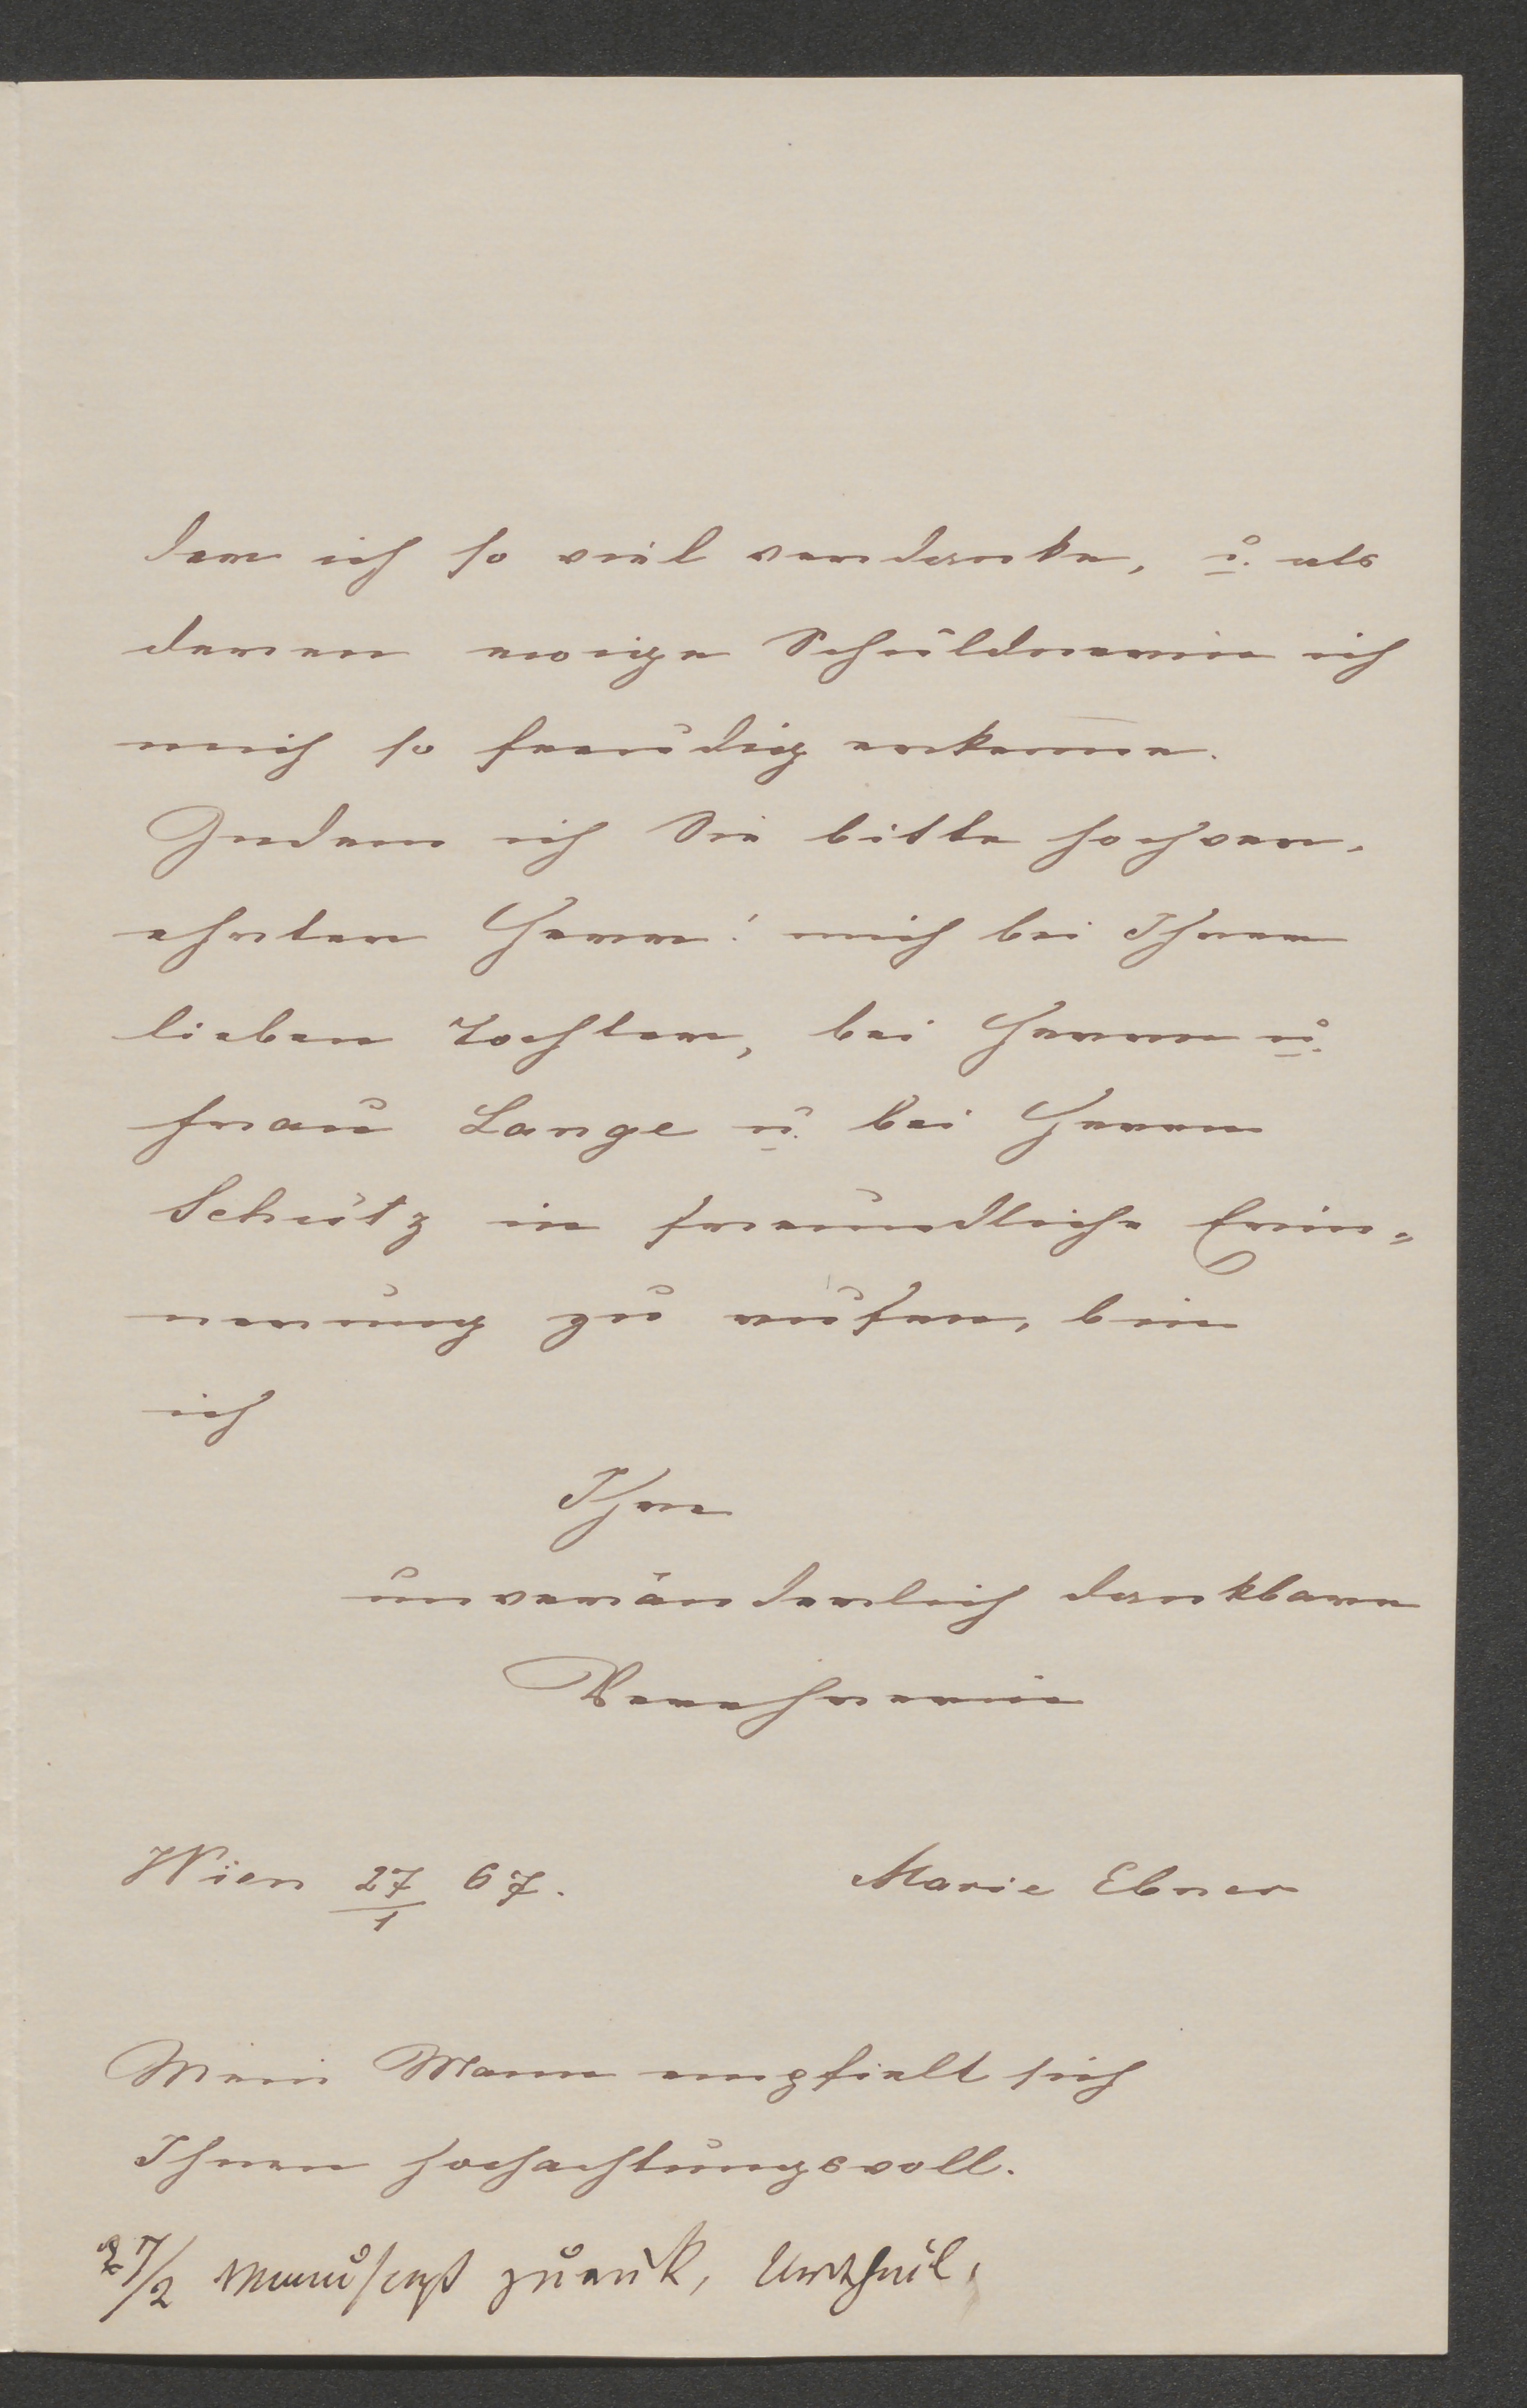 dem ich so viel verdanke, u. als
deren ewige Schuldnerin ich
mich so freudig erkenne.
Indem ich Sie bitte hochver-
ehrter Herr! mich bei Ihrer
lieben Tochter, bei Herrn u.
Frau Lange u. bei Herrn
Schütz in freundliche Erin=
nerung zu rufen, bin
ich
Ihre
unveränderlich dankbare
Verehrerin
Wien 27/1 67.
Marie Ebner
Mein Mann empfielt sich
Ihnen hochachtungsvoll.
27/2 Manuscript zurük, Urtheil.